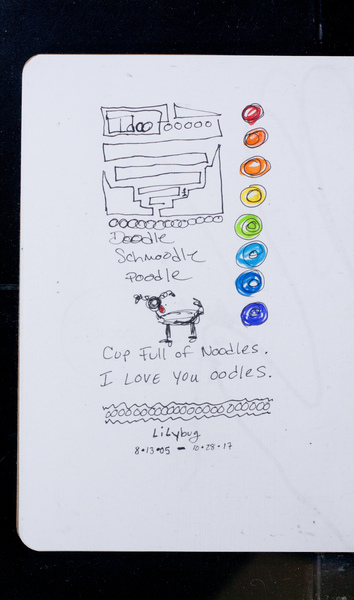 I doo
Doodle
Schmoodle
Poodle
Cup Full of Noodles.
I LOVE YOU oodles.
LiLybug
8•13•05 – 10•28•17